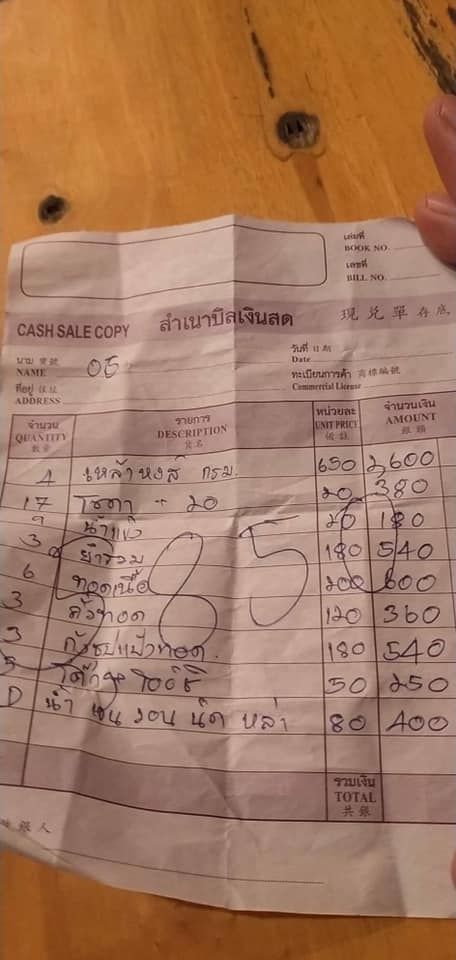 เล่มที่
BOOK NO.
เลขที่
BILL NO.
CASH SALE COPY สำเนาบิลเงินสด 現兌單存底
นาม 寶號
NAME 05
วันที่ 日期
Date
ที่อยู่ 住址
ADDRESS
ทะเบียนการค้า 商標編號
Commercial License
จำนวน รายการ หน่วยละ จำนวนเงิน
QUANTITY DESCRIPTION UNIT PRICE AMOUNT
數量 貨名 價錢 銀額
4 เหล้าหงส์ กรม. 650 2,600
17 โซดา 20 20 380
9 น้ำแข็ง 20 180
3 ยำรวม 180 540
6 ทอดเนื้อ 200 600
3 ถั่วทอด 120 360
3 กุ้งชุบแป้งทอด 180 540
5 50 250
น้ำ 80 400
85
รวมเงิน
TOTAL
共銀
銀人